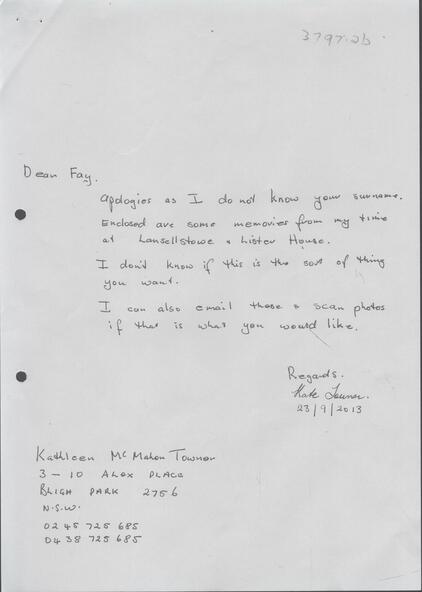 3797.2b
Dear Fay.
Apologies as I do not know your surname.
Enclosed are some memories from my time
at Lansellstowe & Lister House.
I don't know if this is the sort of thing
you want.
I can also email these & scan photos
if that is what you would like.
Regards.
Kate Towner.
23/9/2013
Kathleen McMahon Towner
3-10 Alex Place
Bligh Park 2756
N.S.W.
02 45 725 685
0438 725 685